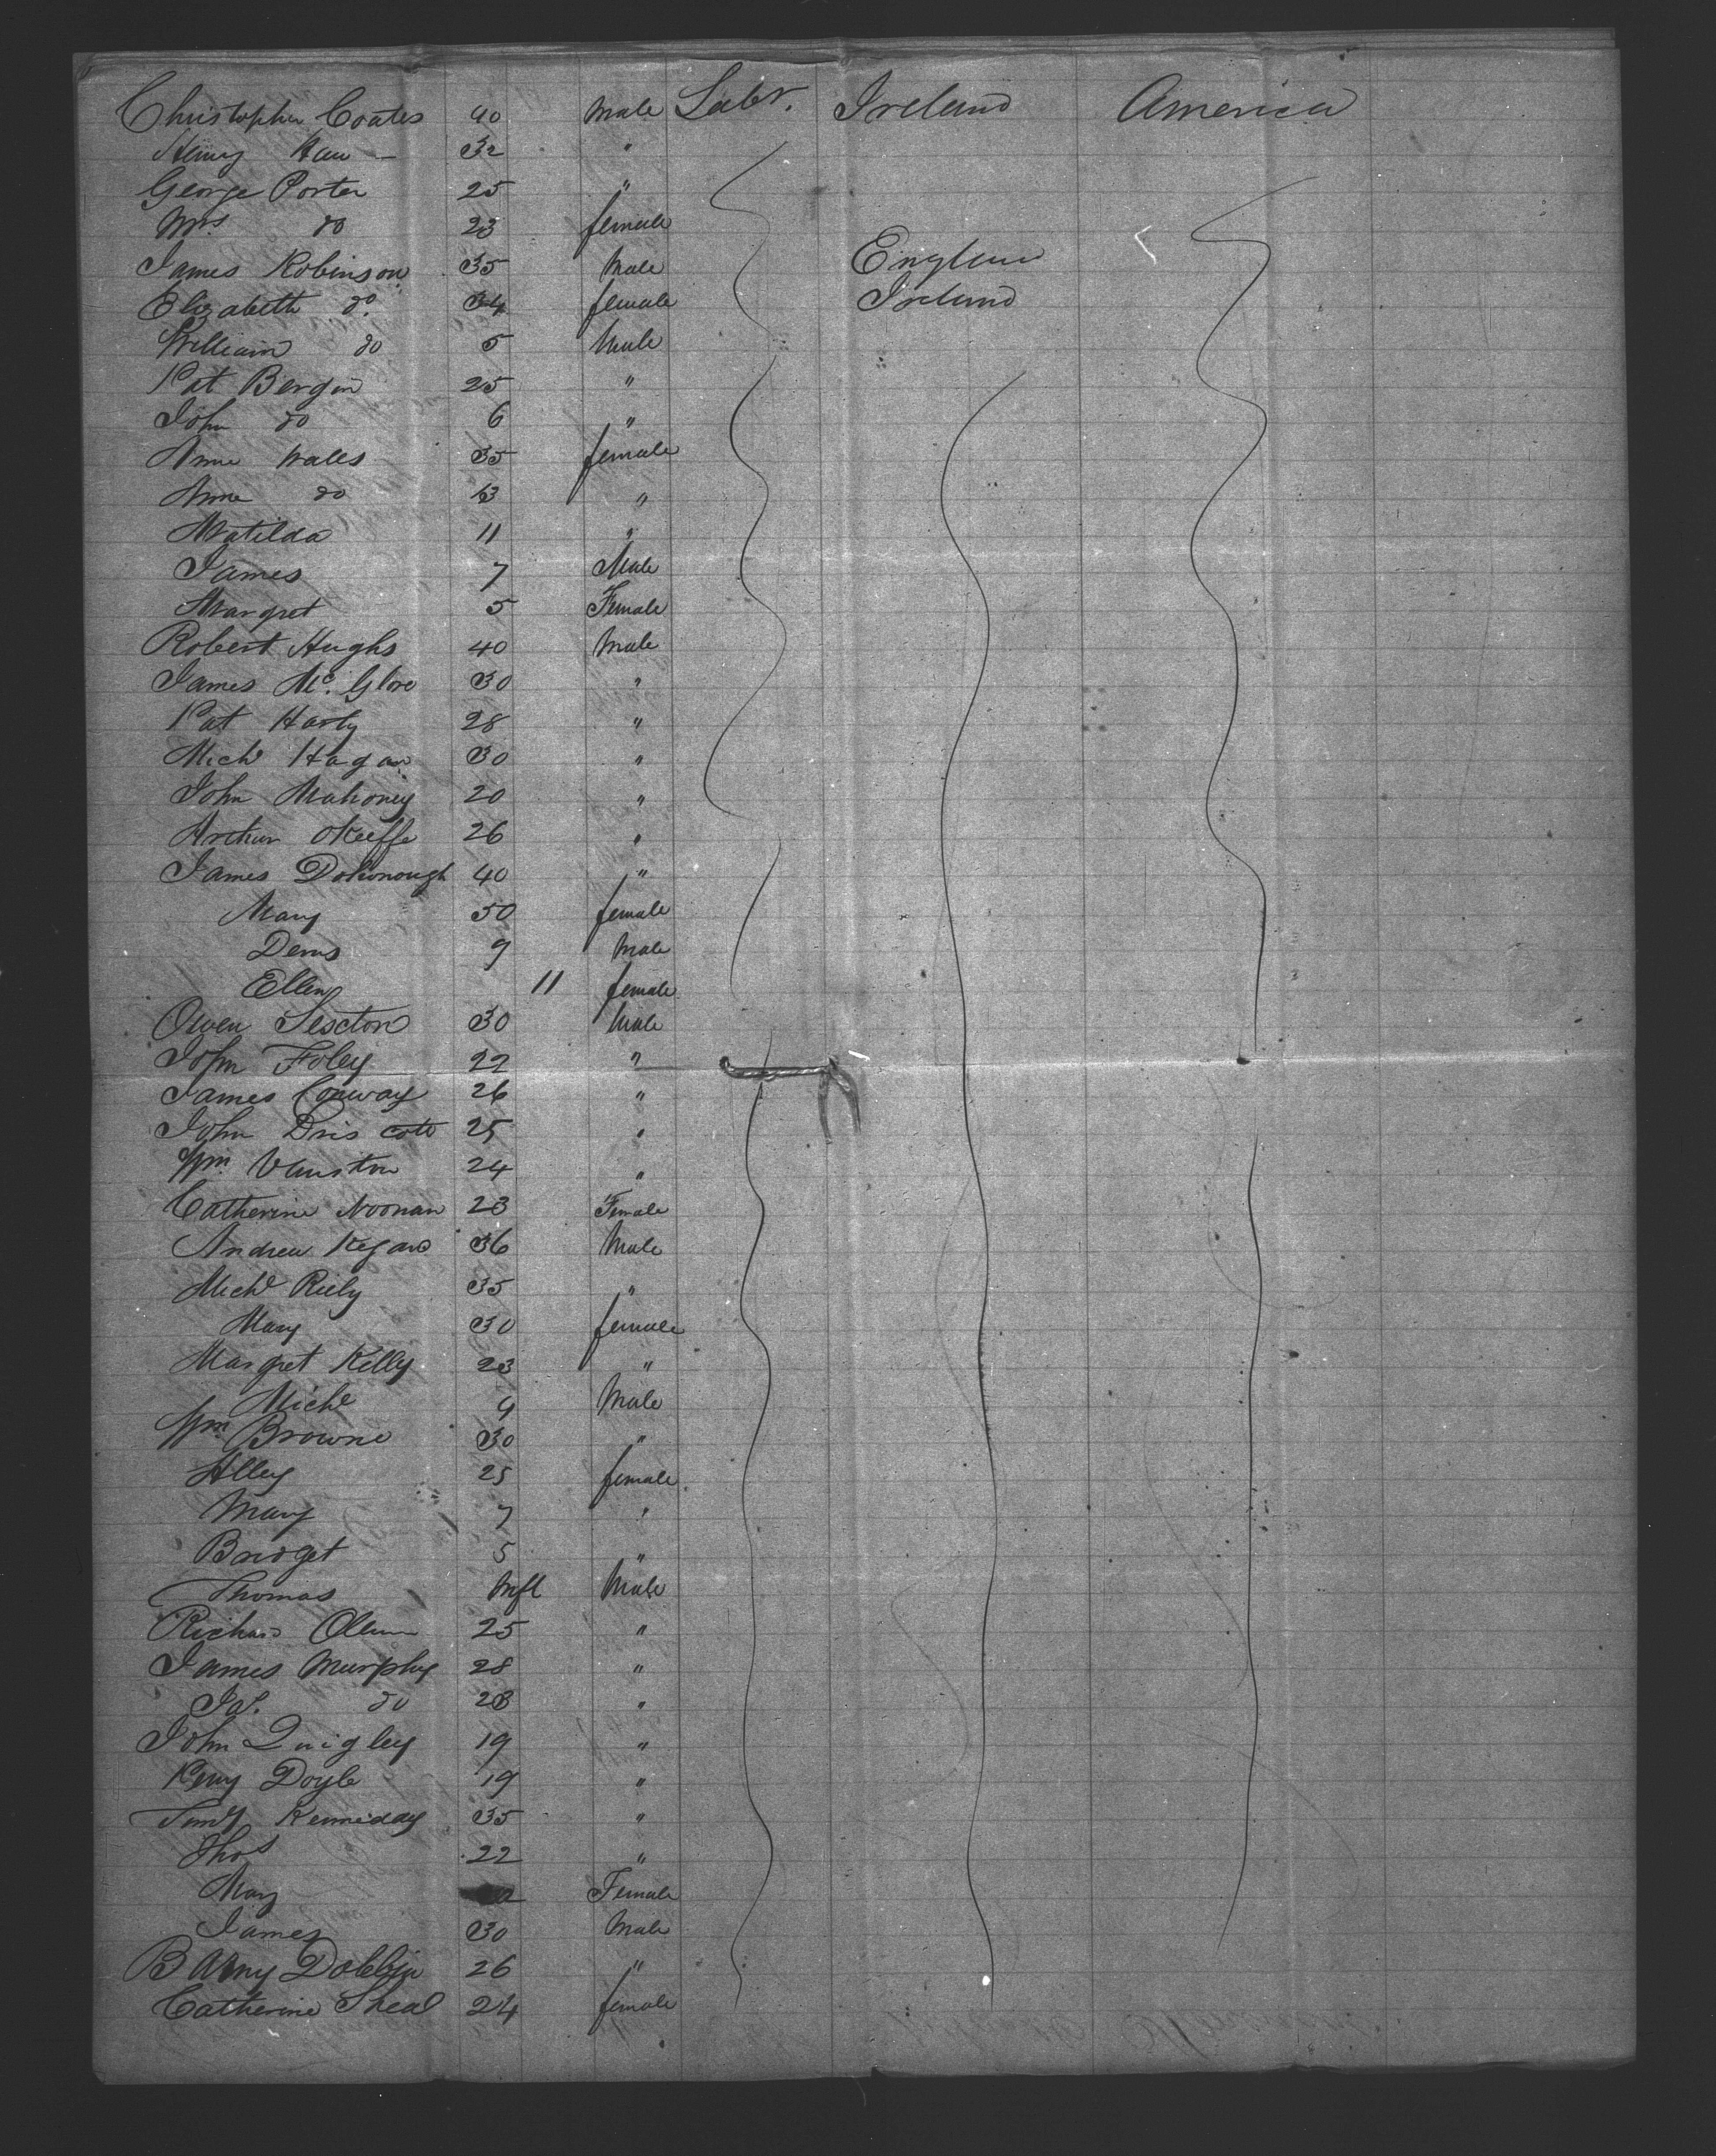 Christopher Coates 40 Male Labr. Ireland America
Henry 32 "
George Porter 25 "
Mrs do 23 female
James Robinson 35 Male England
Elizabeth do. 34 female Ireland
William do 5 Male
Pat Bergin 25 "
John do 6 "
Anne Wales 35 female
Anne do 13 "
Matilda 11 "
James 7 Male
Margret 5 Female
Robert Hughs 40 Male
James Mc. Glore 30 "
Pat Harty 28 "
Michl Hagan 30 "
John Mahoney 20 "
Arthur OKeeffe 26 "
James Dohonough 40 "
Mary 30 female
Denis 9 Male
Ellen 11 female
Owen Sexton 30 Male
John Foley 22 "
James Conway 26 "
John Dris cole 25 "
Wm. Vanston 24 "
Catherine Noonan 23 Female
Andrew Kegan 36 Male
Michl Riely 35 "
Mary 30 female
Margret Kelly 23 "
Michl 9 Male
Wm Browne 30 "
Alley 25 female
Mary 7 "
Bridget 5 "
Thomas Inft Male
Richard 25 "
James Murphy 28 "
Jas. do 28 "
John Quigley 19 "
Doyle 19 "
Timy Kenneday 35 "
Thos 22 "
Mary Female
James 30 Male
Barny Dobbin 26 "
Catherine Sheal 24 female